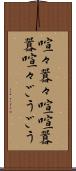 喧々囂々喧喧囂
囂喧々ごうごう